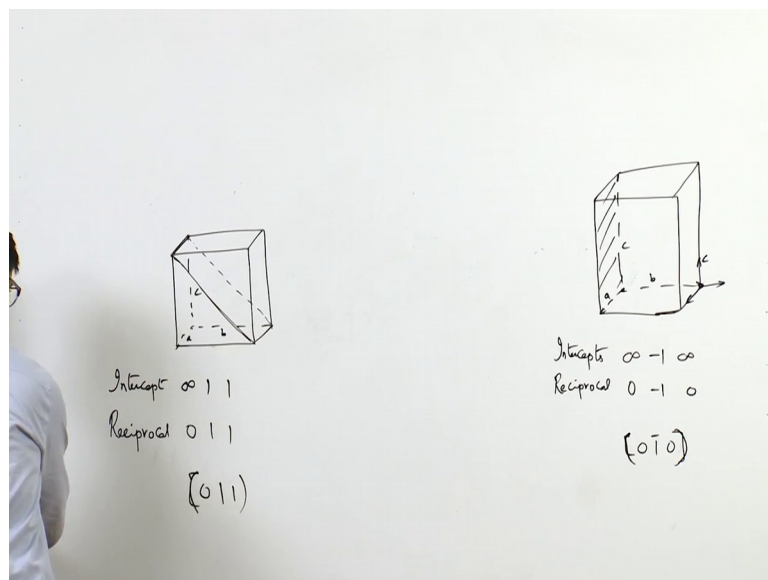 c
a
b
Intercept ∞ 1 1
Reciprocal 0 1 1
(0 1 1)
c
c
b
a
Intercepts ∞ -1 ∞
Reciprocal 0 -1 0
(0 1̄ 0)